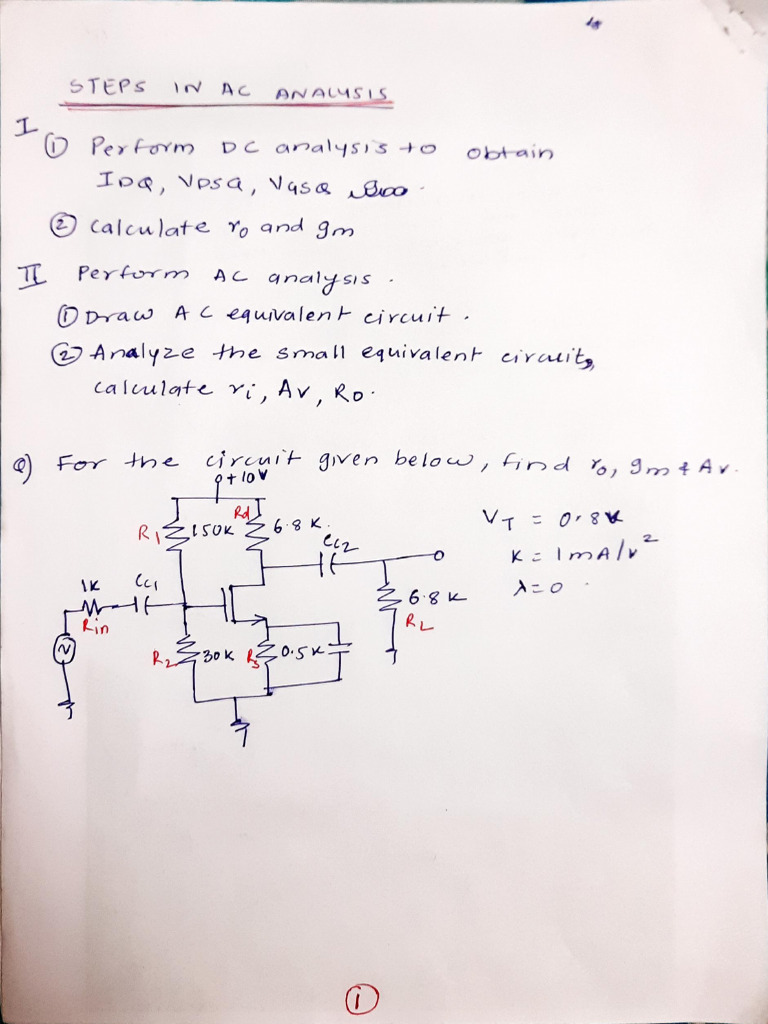 STEPS IN AC ANALYSIS
I
① Perform DC analysis to obtain
IDQ, VDSQ, VGSQ
② Calculate ro and gm
II Perform AC analysis.
① Draw AC equivalent circuit.
② Analyze the small equivalent circuit,
calculate ri, Av, Ro.
Q) For the circuit given below, find ro, gm & Av.
+10V
R1 150K Rd 6.8K.
VT = 0.8V
K = 1mA/V²
λ=0.
CC2
1K CC1
Rin
6.8K
RL
R2 30K Rs 0.5K
①